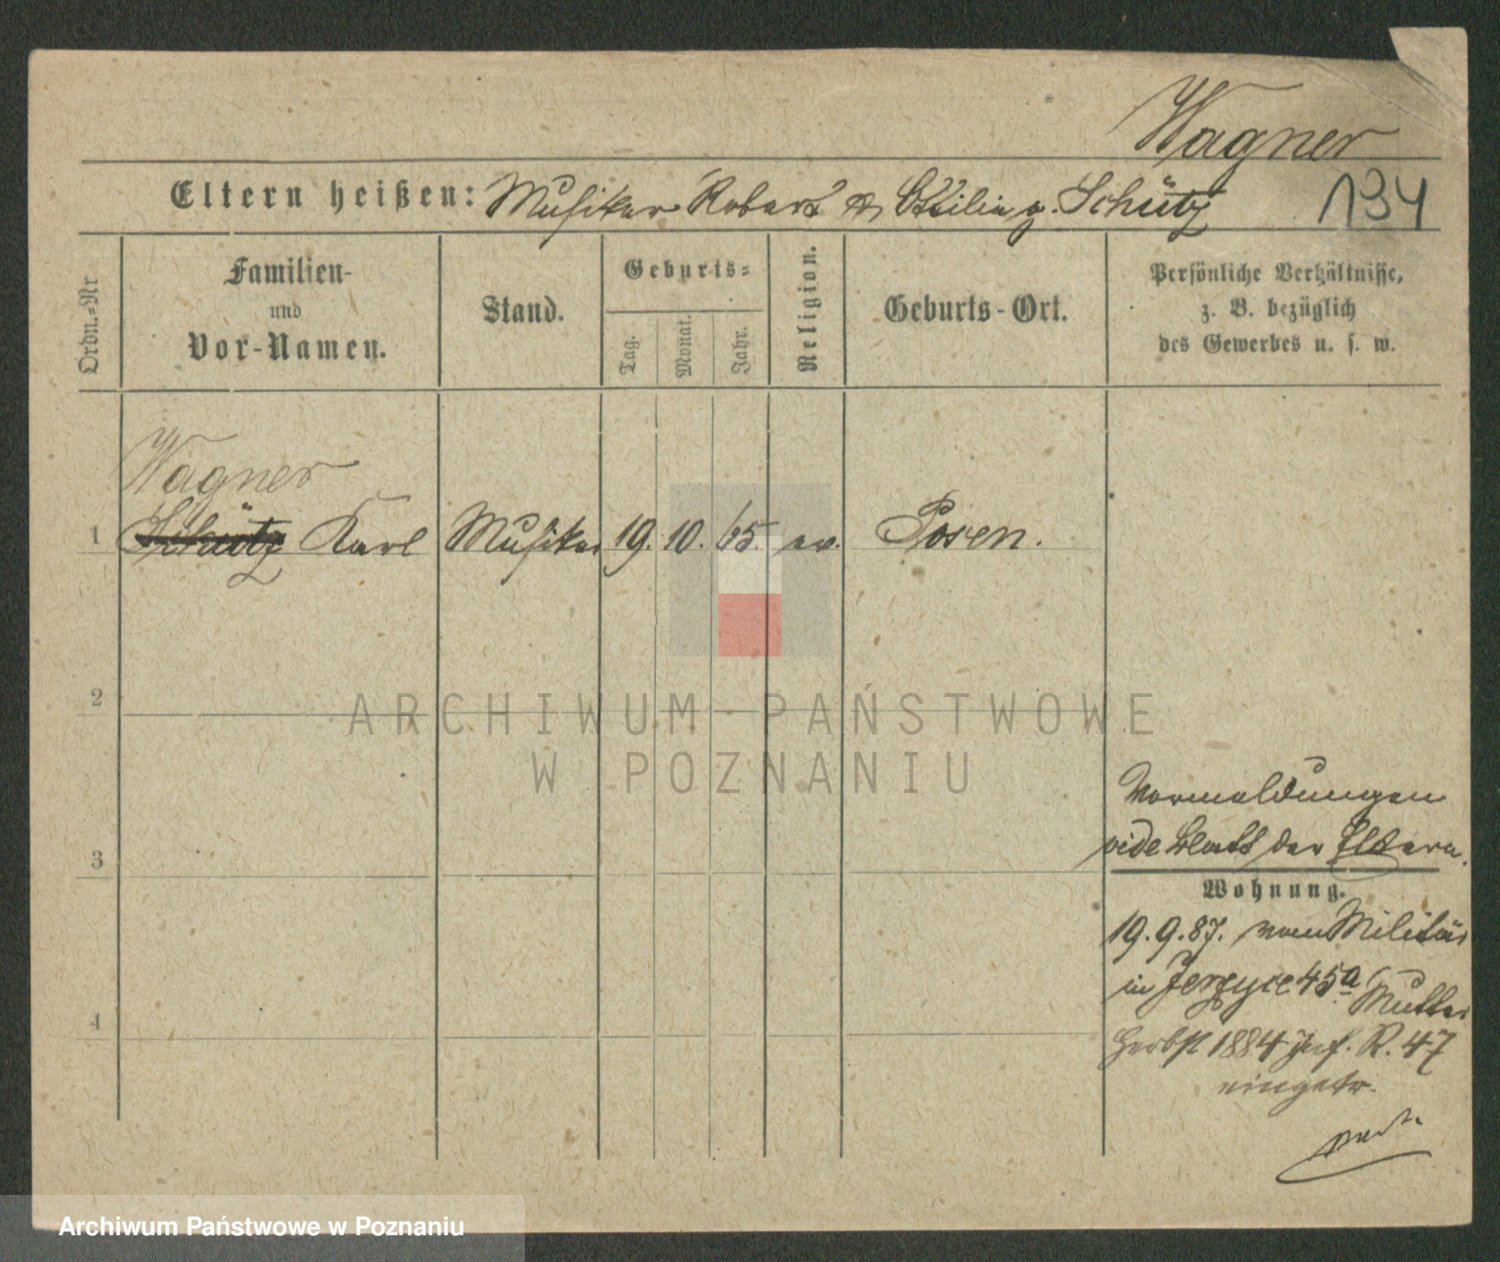 Wagner
Eltern heißen: Musiker Robert & Cäcilie g. Schütz
134
Ordn.-Nr
Familien-
und
Vor-Namen.
Stand.
Geburts-
Tag.
Monat.
Jahr.
Religion.
Geburts-Ort.
Persönliche Verhältnisse,
z. B. bezüglich
des Gewerbes u. s. w.
Wagner
1 Schütz Karl Musiker 19. 10. 65. ev. Posen.
2
3
4
ARCHIWUM PAŃSTWOWE
W POZNANIU
Vormeldungen
vide Blatt der Eltern.
Wohnung.
19.9.87. vom Militär
in Jerzyce 45a Mutter
Herbst 1884 Inf. R. 47
eingetr.
Archiwum Państwowe w Poznaniu